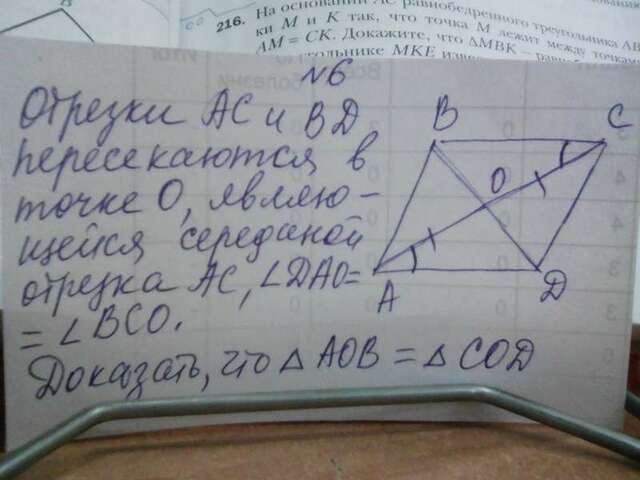 216.
На основании AC равнобедренного треугольника AB
ки M и K так, что точка M лежит между точками
AM = CK. Докажите, что ΔMBK – равноб
угольнике MKE изве
№6
Отрезки AC и BD
пересекаются в
точке O, являю-
щейся серединой
отрезка AC, ∠DAO=
= ∠BCO.
Доказать, что △ AOB = △ COD
B
C
O
A
D